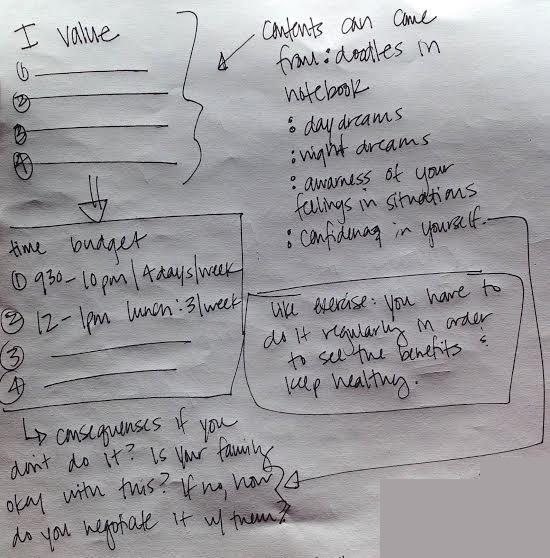 I value
①
②
③
④
contents can come
from: doodles in
notebook
: daydreams
: night dreams
: awarness of your
feelings in situations
: confidence in yourself.
time budget
① 930-10pm/4days/week
② 12-1pm lunch: 3/week
③
④
like exercise: you have to
do it regularly in order
to see the benefits &
keep healthy.
↳ consequenses if you
don't do it? Is your family
okay with this? If no, how
do you negotiate it w/ them?